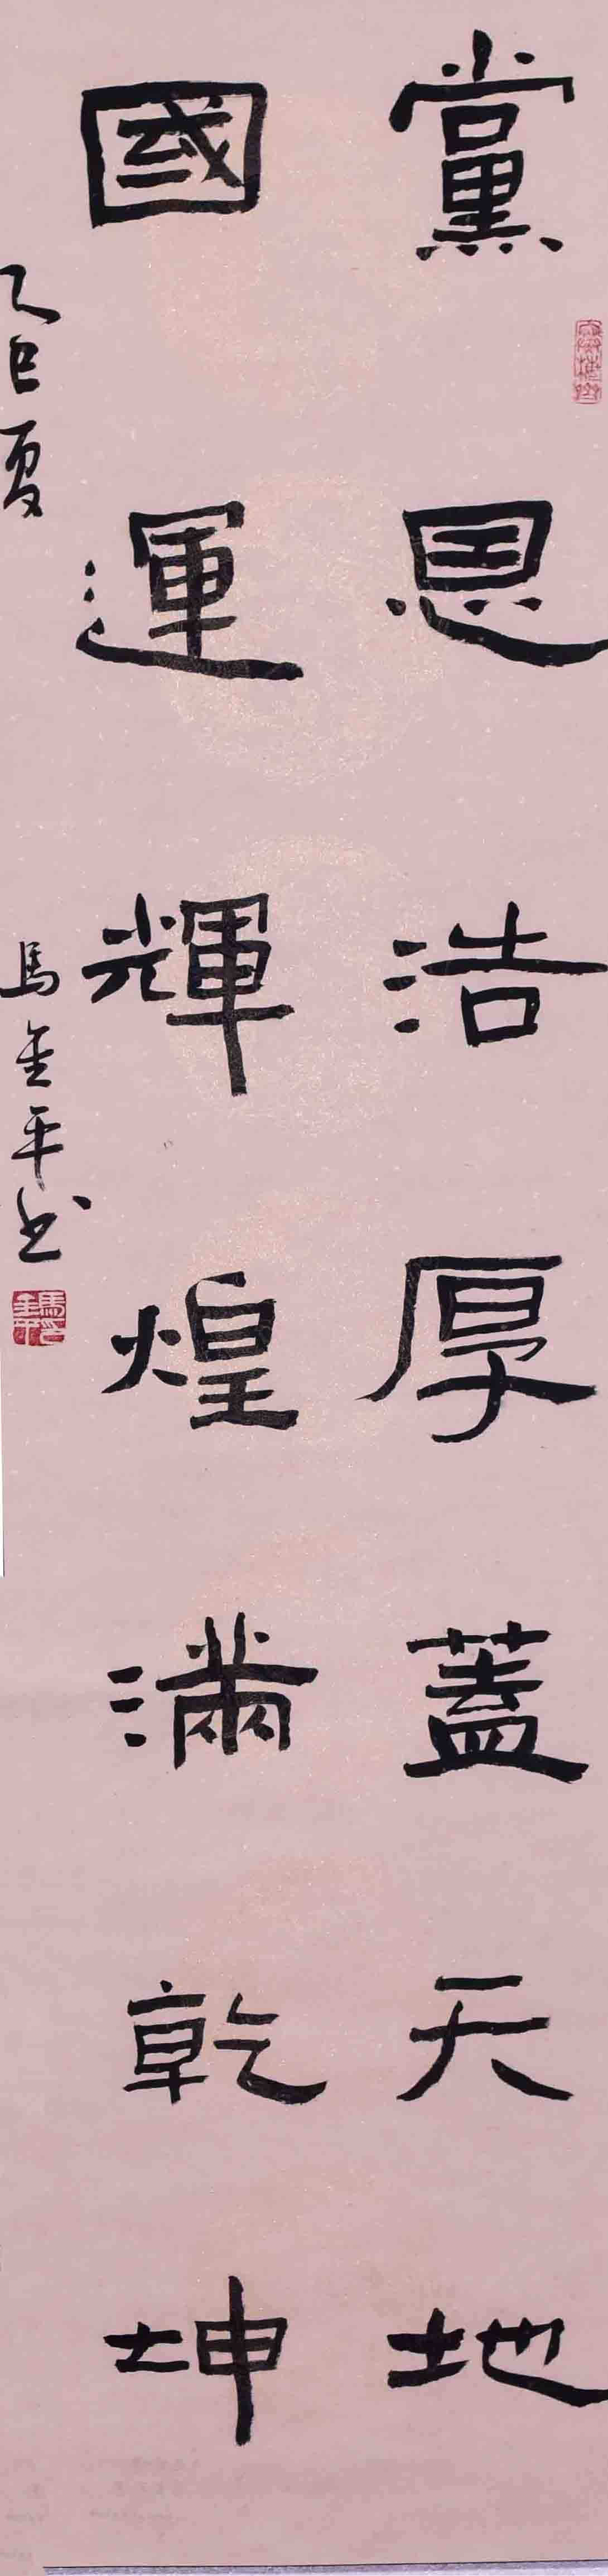 黨恩浩厚蓋天地
國運輝煌滿乾坤
乙巳夏
馬金平书
馬金平印